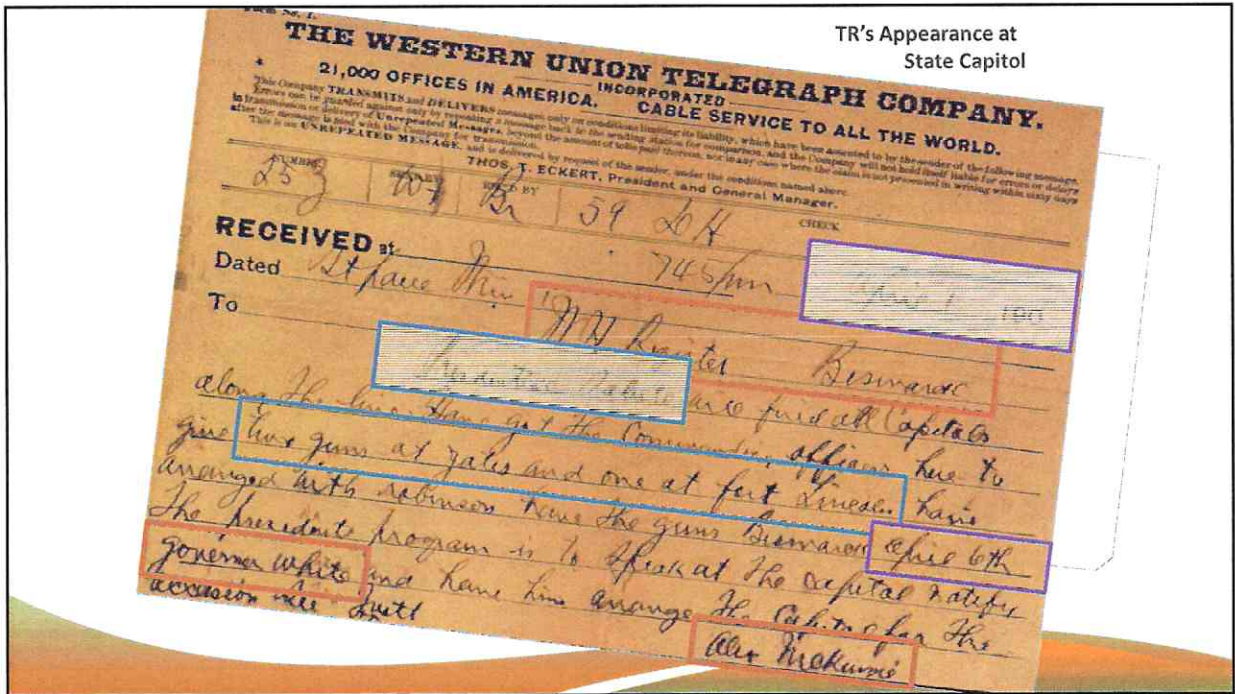 TR's Appearance at
State Capitol
Form No. 1.
THE WESTERN UNION TELEGRAPH COMPANY.
INCORPORATED
21,000 OFFICES IN AMERICA. CABLE SERVICE TO ALL THE WORLD.
This Company TRANSMITS and DELIVERS messages only on conditions limiting its liability, which have been assented to by the sender of the following message.
Errors can be guarded against only by repeating a message back to the sending station for comparison, and the Company will not hold itself liable for errors or delays
in transmission or delivery of Unrepeated Messages, beyond the amount of tolls paid thereon, nor in any case where the claim is not presented in writing within sixty days
after the message is filed with the Company for transmission.
This is an UNREPEATED MESSAGE, and is delivered by request of the sender, under the conditions named above.
THOS. T. ECKERT, President and General Manager.
NUMBER BY CHECK
253 59 DH
RECEIVED at 745 pm 190
Dated St Paul Min
To W H Register Bismarck
Presidential Salute are fired all Capitals
along the line Have got the Commanding officer here to
give two guns at yates and one at fort Lincoln have
arranged with robinson have the guns Bismarck april 6th
The presidents program is to speak at the capital notify
governor white and have him arrange the for the
occasion
Alex McKenzie